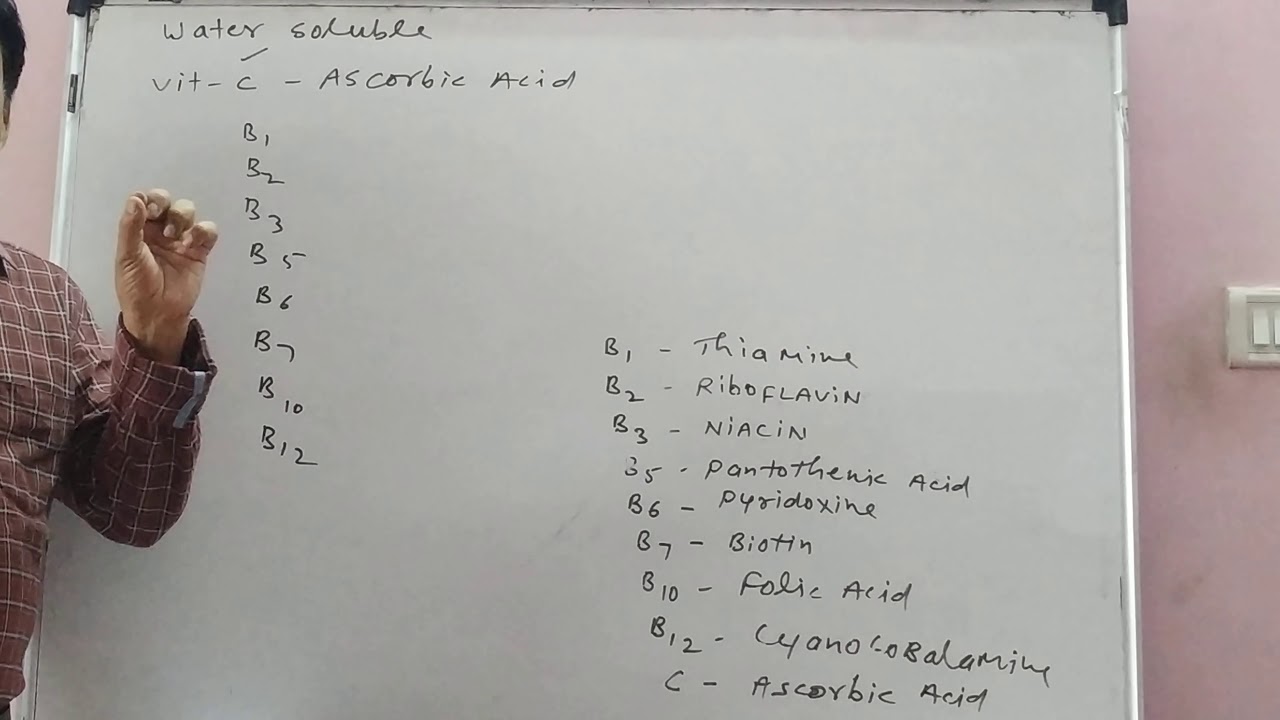 Water soluble
vit-C - Ascorbic Acid
B1
B2
B3
B5
B6
B7
B10
B12
B1 - Thiamine
B2 - RiboFLAViN
B3 - NiACiN
B5 - Pantothenic Acid
B6 - Pyridoxine
B7 - Biotin
B10 - Folic Acid
B12 - CyanocoBalamine
C - Ascorbic Acid